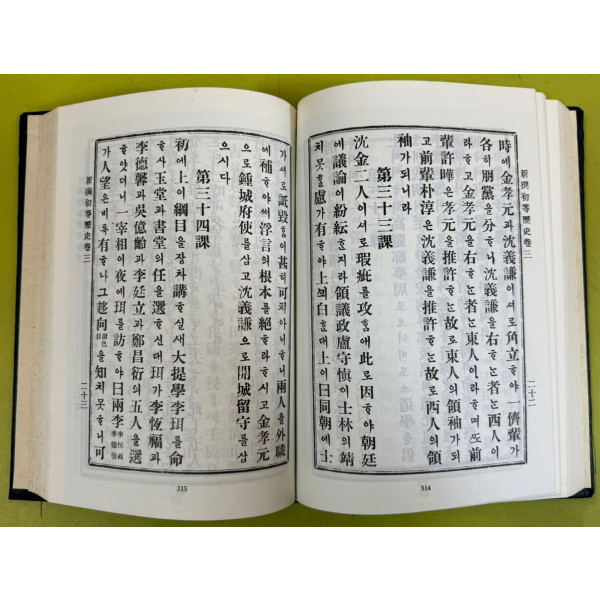 新撰初等歷史卷三
二十二
時에金孝元과沈義謙이셔로角立ᄒᆞ야一儕輩가
各히朋黨을分ᄒᆞ니沈義謙을右ᄒᆞᄂᆞᆫ者ᄂᆞᆫ西人이
라ᄒᆞ고金孝元을右ᄒᆞᄂᆞᆫ者ᄂᆞᆫ東人이라ᄒᆞ며ᄯᅩ前
輩許曄은孝元을推許ᄒᆞᄂᆞᆫ故로東人의領袖가되
고前輩朴淳은沈義謙을推許ᄒᆞᄂᆞᆫ故로西人의領
袖가되니라
第三十三課
沈金二人이셔로瑕疵를攻ᄒᆞ애此로因ᄒᆞ야朝廷
에議論이紛紜ᄒᆞ지라領議政盧守愼이士林의靖
치못ᄒᆞᆯ慮가有ᄒᆞ야上ᄭᅴ白ᄒᆞᆫ대上이曰同朝에士
314
가셔로詆毁ᄒᆞᆷ이甚히可치아니ᄒᆞ니兩人을外職
에補ᄒᆞ야써浮言의根本를絕ᄒᆞ라ᄒᆞ시고金孝元
으로鍾城府使를삼고沈義謙으로開城留守를삼
으시다
第三十四課
初에上이綱目을쟝차講ᄒᆞ실새大提學李珥를命
ᄒᆞ사玉堂과書堂의任을選ᄒᆞ신대珥가李恒福과
李德馨과吳億齡과李廷立과鄭昌衍의五人을選
ᄒᆞ얏더니一宰相이夜에珥를訪ᄒᆞ야曰兩李李恒福李德馨
가人望은비록有ᄒᆞ나그趍向을知치못ᄒᆞ니可
新撰初等歷史卷三
二十三
315